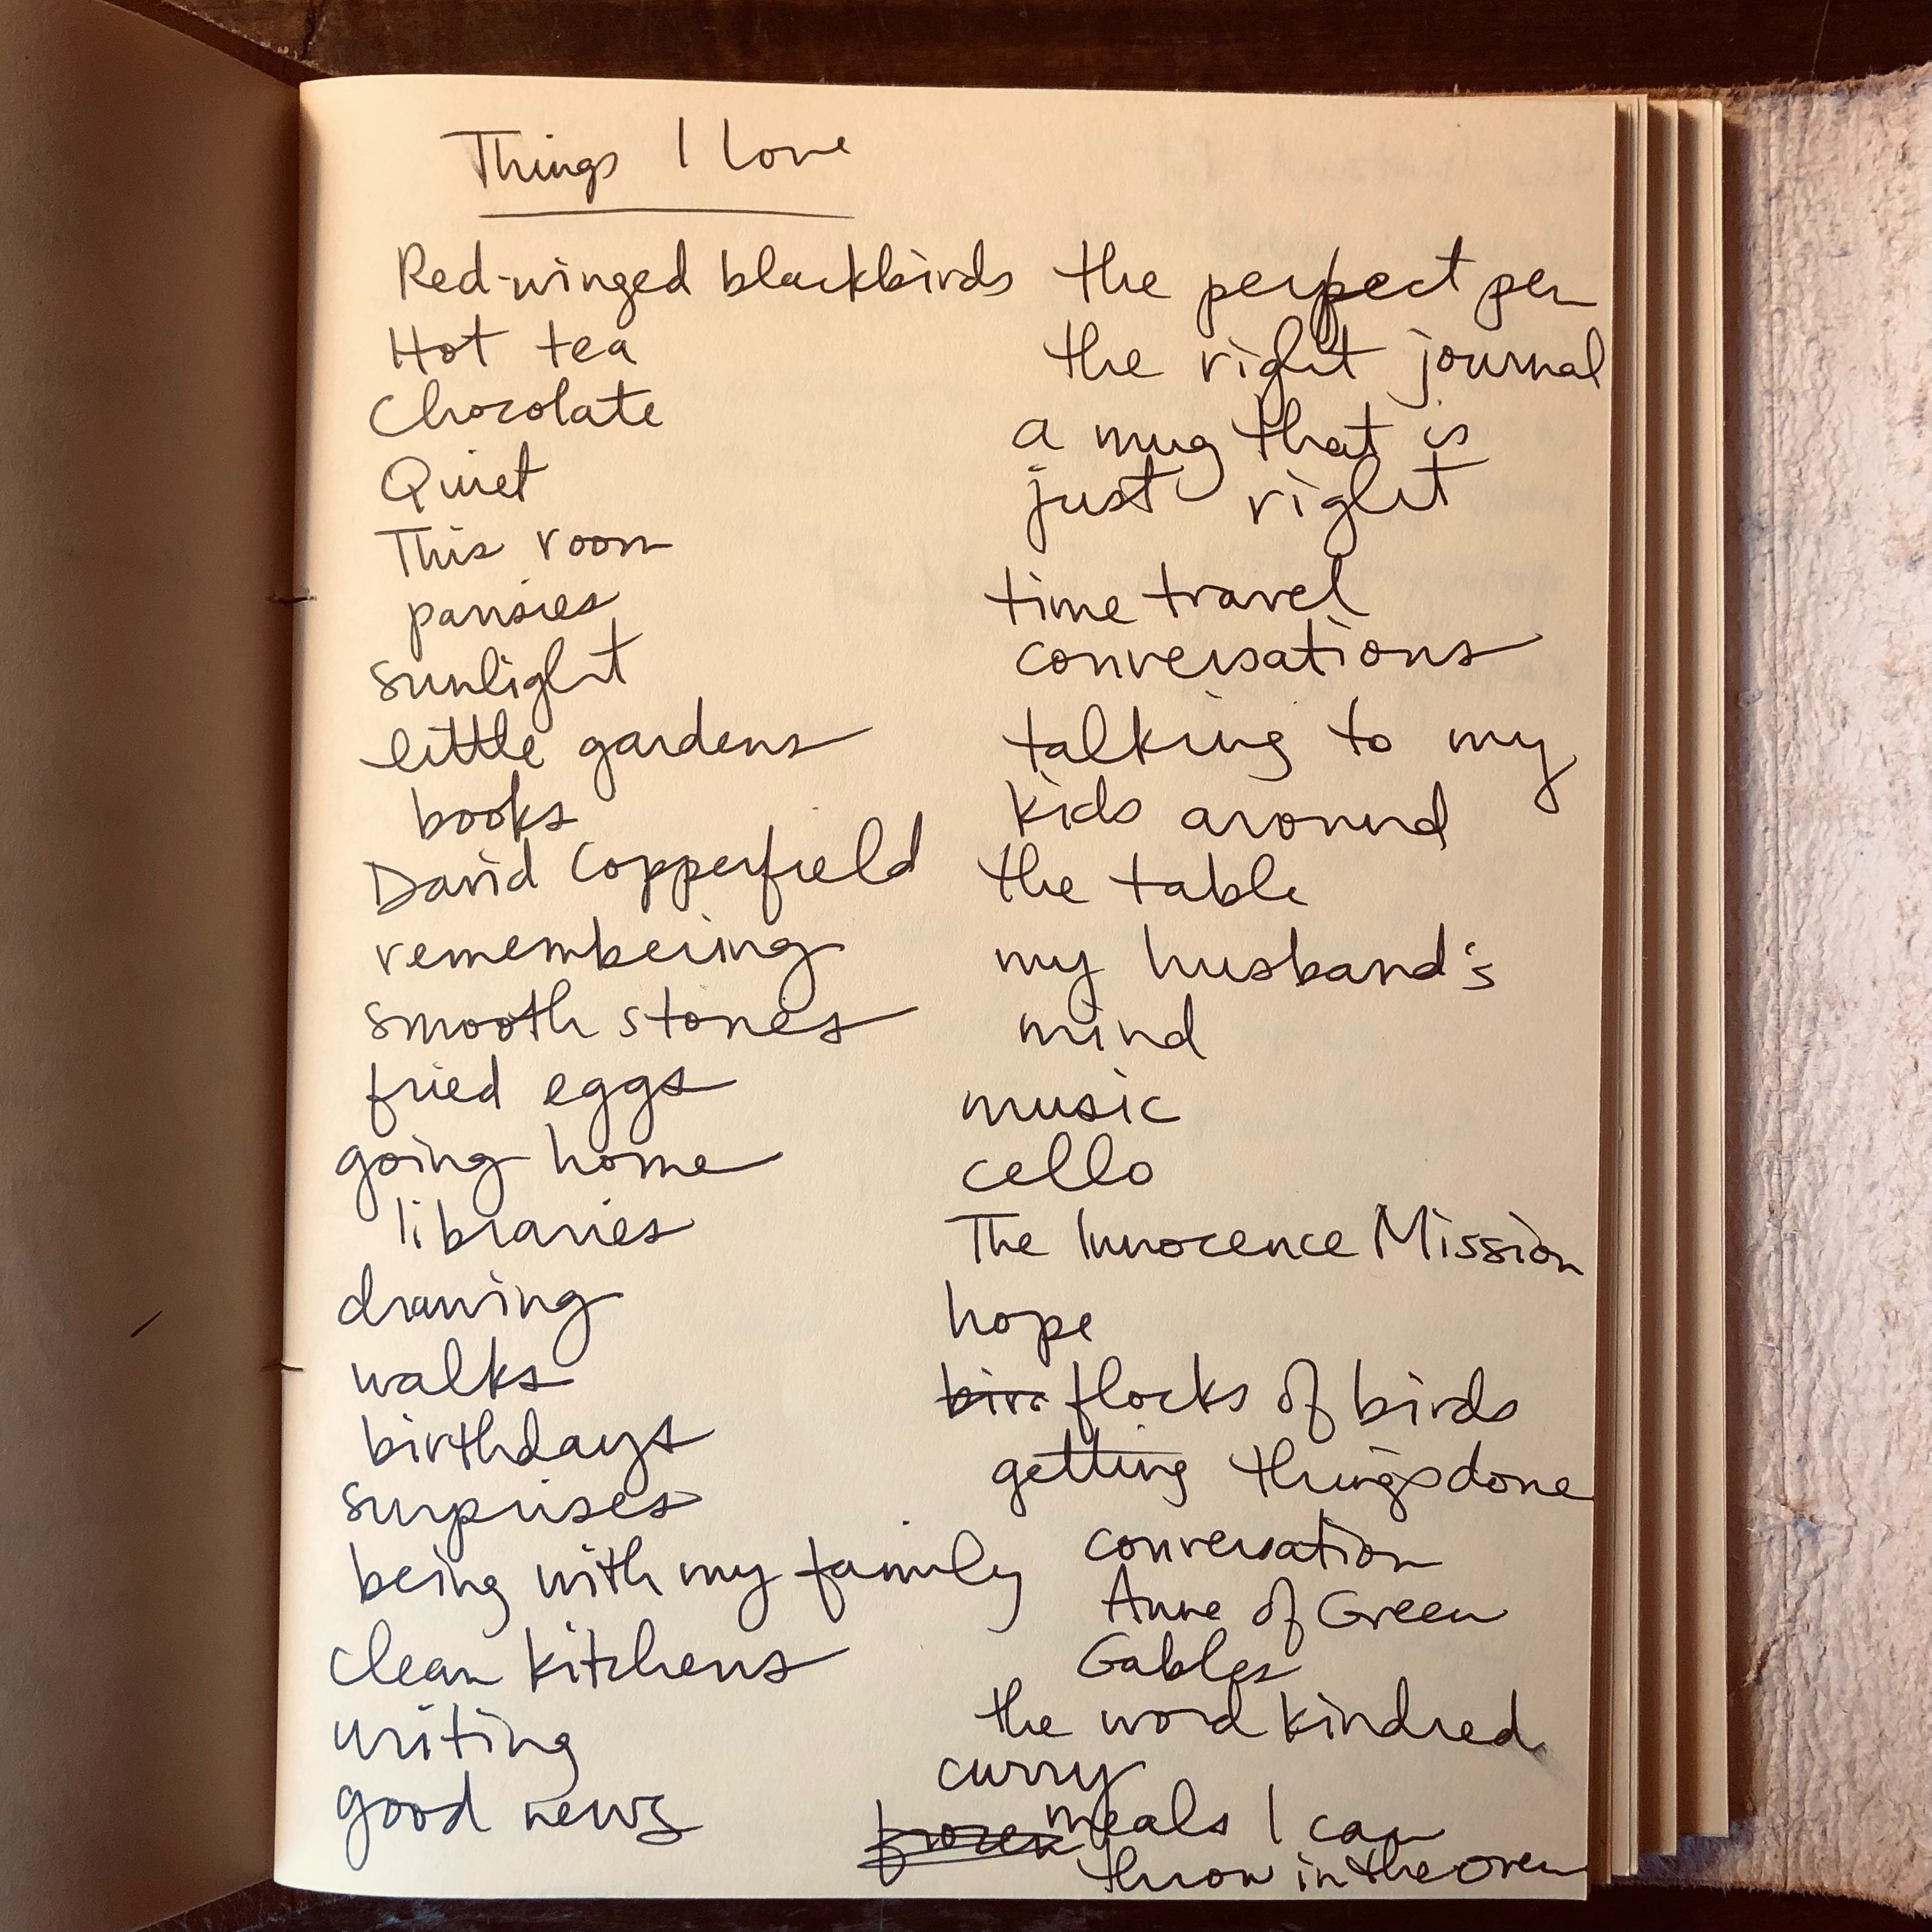 Things I Love
Red-winged blackbirds
Hot tea
Chocolate
Quiet
This room
pansies
sunlight
little gardens
books
David Copperfield
remembering
smooth stones
fried eggs
going home
libraries
drawing
walks
birthdays
surprises
being with my family
clean kitchens
writing
good news
the perfect pen
the right journal
a mug that is
just right
time travel
conversations
talking to my
kids around
the table
my husband's
mind
music
cello
The Innocence Mission
hope
flocks of birds
getting things done
conversation
Anne of Green
Gables
the word kindred
curry
frozen meals I can
throw in the oven